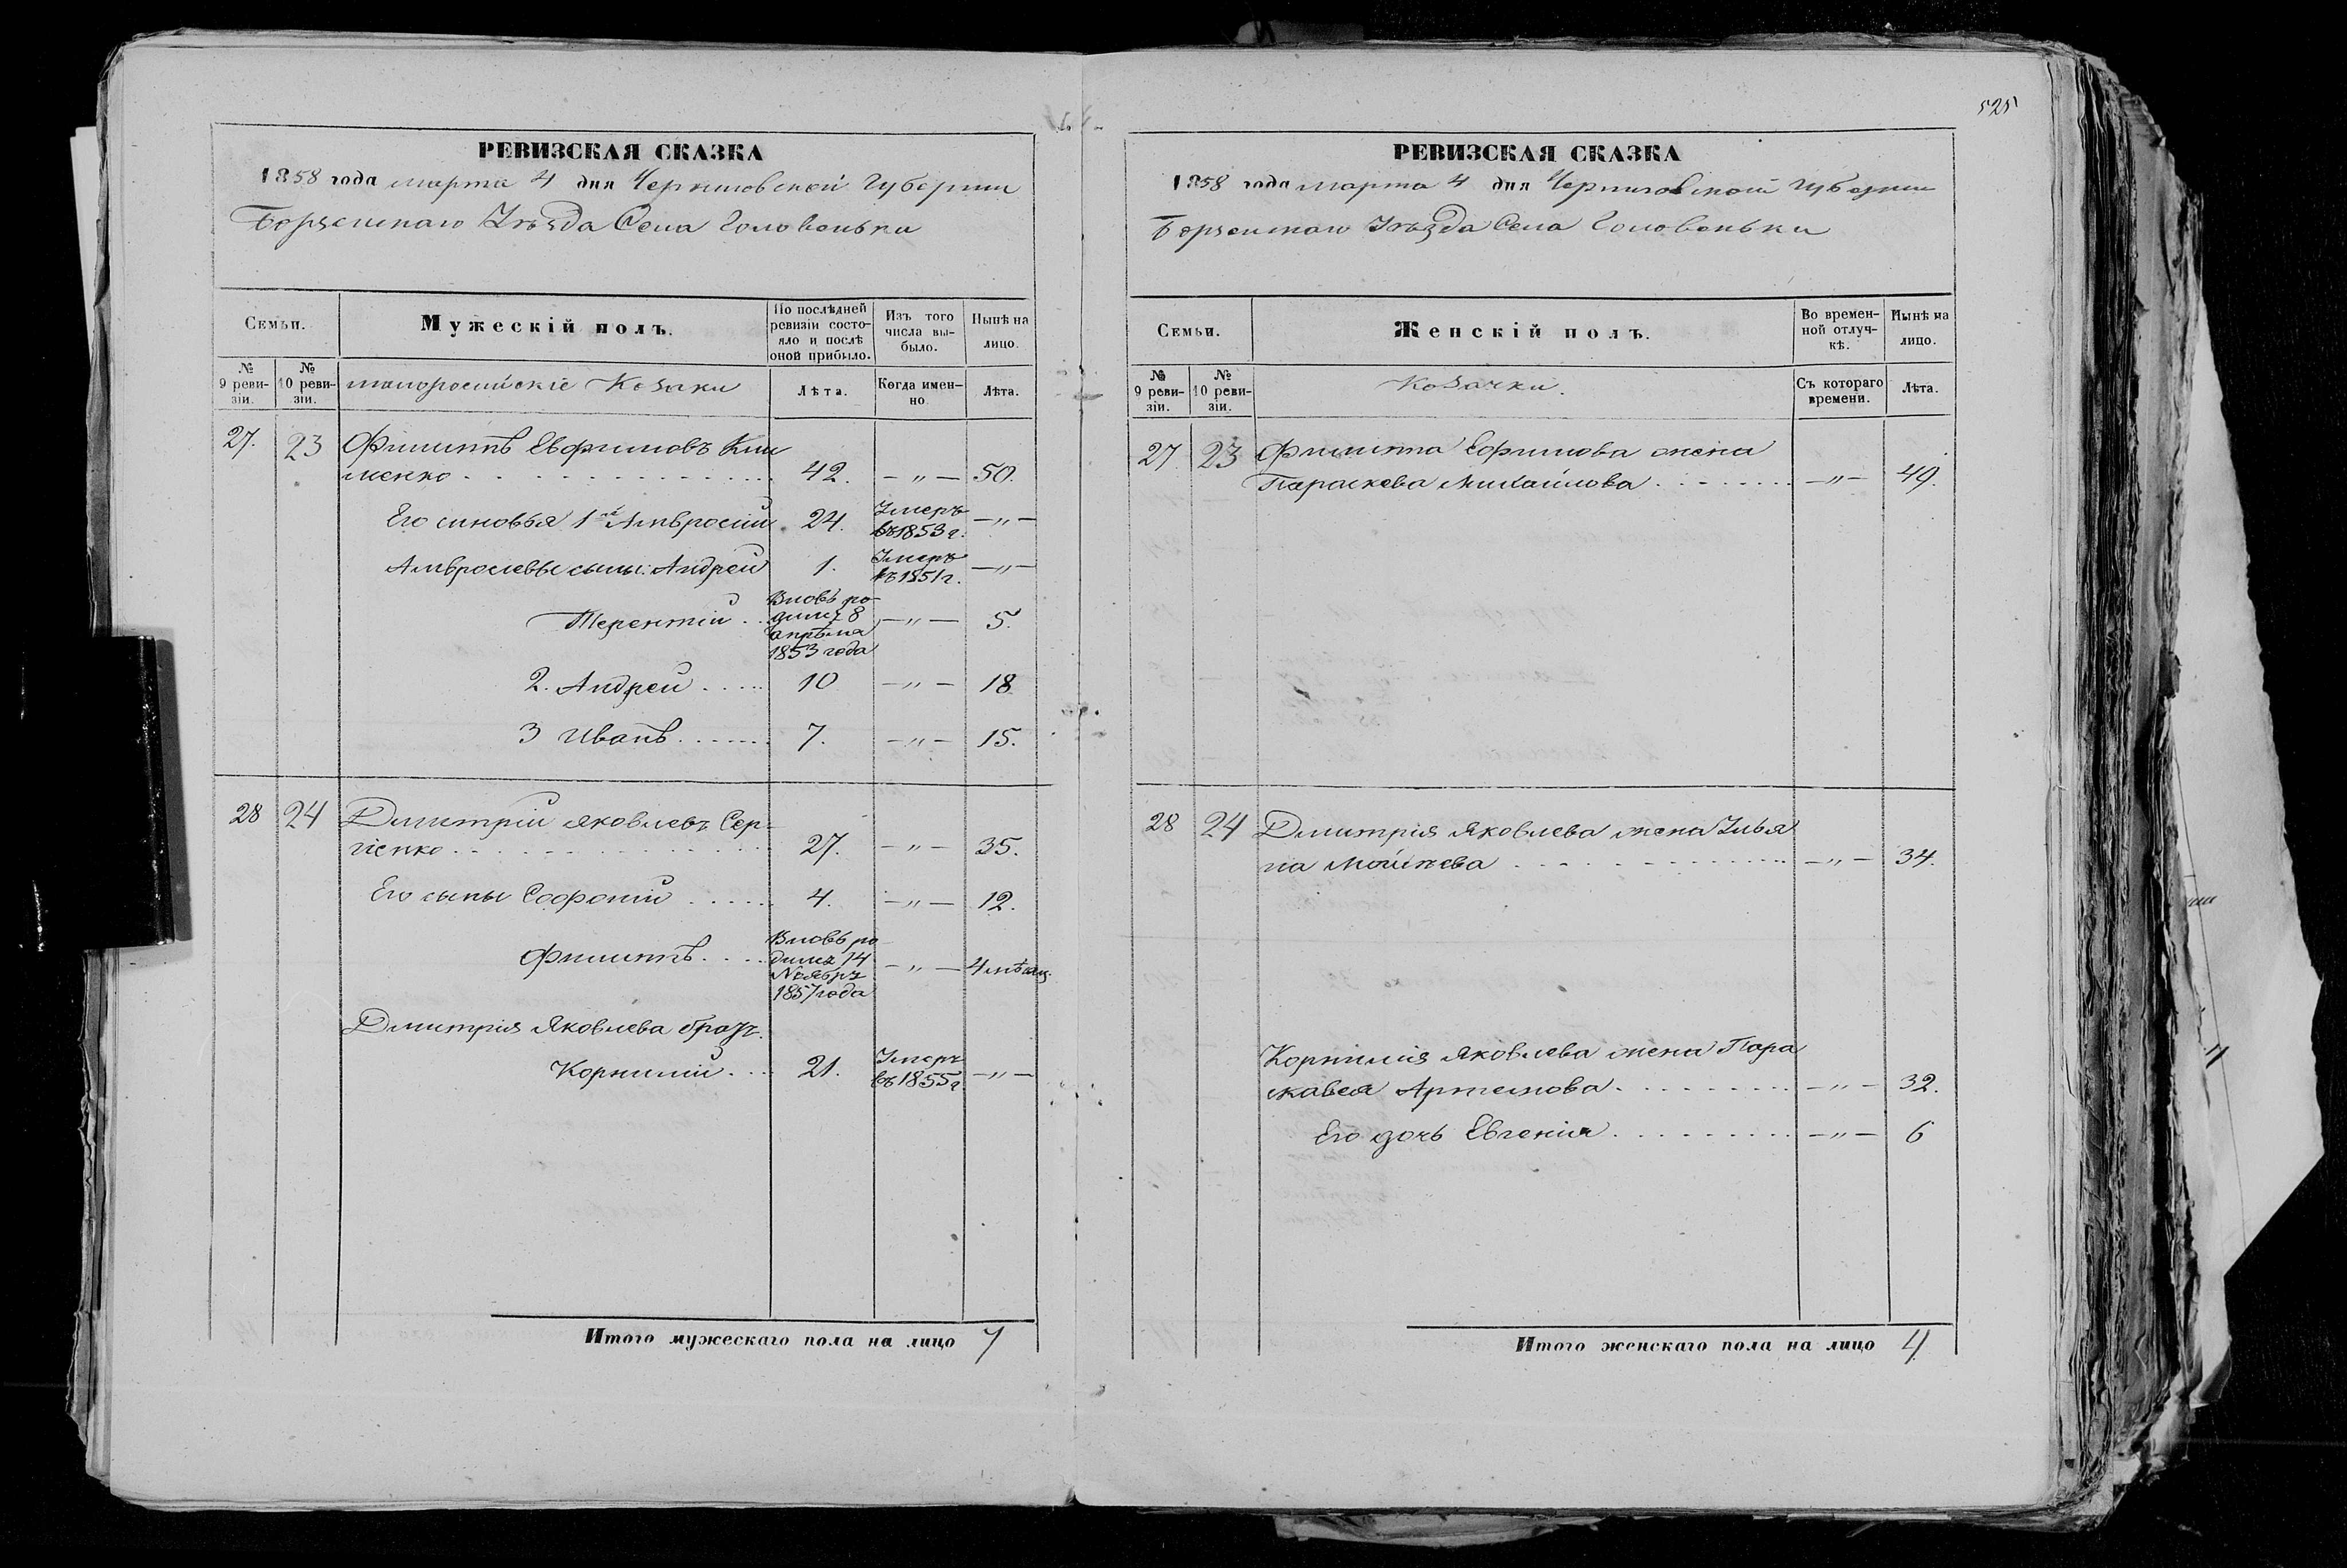 525
РЕВИЗСКАЯ СКАЗКА
1858 года марта 4 дня Черниговской Губернии
Борзенскаго Уѣзда Села Головеньки
Семьи.
Мужескій полъ.
По послѣдней ревизіи состояло и послѣ оной прибыло.
Изъ того числа выбыло.
Нынѣ на лицо.
№ 9 ревизіи.
№ 10 ревизіи.
малороссійскіе Козаки
Лѣта.
Когда именно
Лѣта.
27. 23 Филиппъ Евфимовъ Кли
менко 42. — " — 50.
Его синовья 1й Амвросій 24. Умеръ въ 1853 г. — " —
Амвросіевы сыны: Андрей 1. Умеръ въ 1851 г. — " —
Терентій Вновь ро-
дилс 8
апрѣля
1853 года — " — 5.
2. Андрей 10 — " — 18
3 Иванъ 7. — " — 15.
28 24 Дмитрій Яковлевъ Сер-
гіенко 27. — " — 35.
Его сыны Софроній 4. — " — 12.
Филиппъ Вновь ро
14
Ноябрь
1857 года — " — 4 мѣсяц.
Дмитрія Яковлева братъ
Корнилій 21. Умеръ въ 1855 г. — " —
Итого мужескаго пола на лицо 7
РЕВИЗСКАЯ СКАЗКА
1858 года марта 4 дня Черниговской Губернии
Борзенскаго Уѣзда Села Головеньки
Семьи.
Женскій полъ.
Во временной отлучкѣ.
Нынѣ на лицо.
№ 9 ревизіи.
№ 10 ревизіи.
Козачки.
Съ котораго времени.
Лѣта.
27 23 Филиппа Ефимова жена
Параскева Михайлова — " — 49.
28 24 Дмитрія Яковлева жена Улья
на — " — 34.
Корнилія Яковлева жена Пара
скавея Артемова — " — 32.
Его дочь Евгенія — " — 6
Итого женскаго пола на лицо 4